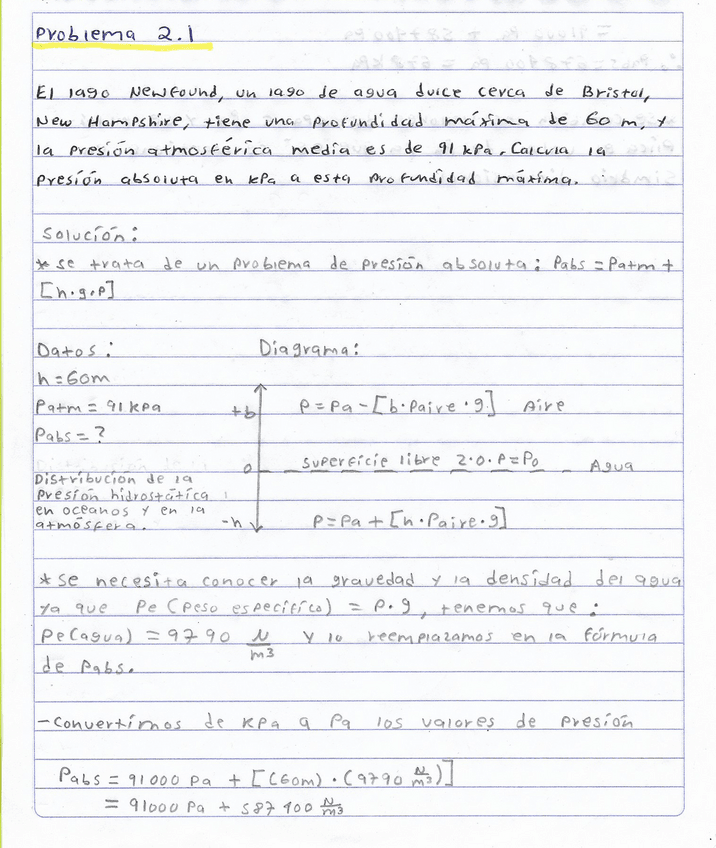 Problema 2.1
El lago Newfound, un lago de agua dulce cerca de Bristol,
New Hampshire, tiene una profundidad máxima de 60 m, y
la presión atmosférica media es de 91 kPa. Calcula la
presión absoluta en kPa a esta profundidad máxima.
Solución:
* se trata de un problema de presión absoluta: Pabs = Patm +
[h·g·ρ]
Datos:
h = 60m
Patm = 91 kPa
Pabs = ?
Distribución de la
presión hidrostática
en oceanos y en la
atmósfera.
Diagrama:
+b P = Pa - [b·Paire·g] Aire
0 superficie libre 2.0. P=P₀ Agua
-h P = Pa + [h·Paire·g]
* Se necesita conocer la gravedad y la densidad del agua
ya que Pe (Peso específico) = ρ·g, tenemos que:
Pe(agua) = 9790 N/m³ y lo reemplazamos en la fórmula
de Pabs.
- Convertimos de KPa a Pa los valores de presión
Pabs = 91000 Pa + [(60m)·(9790 N/m³)]
= 91000 Pa + 587400 N/m³